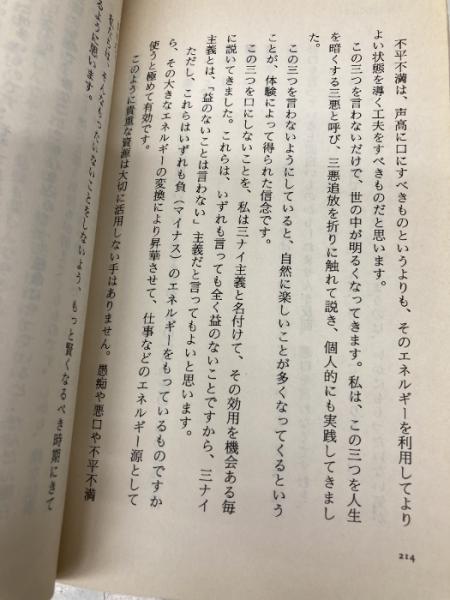 不平不満は、声高に口にすべきものというよりも、そのエネルギーを利用してより
よい状態を導く工夫をすべきものだと思います。
この三つを言わないだけで、世の中が明るくなってきます。私は、この三つを人生
を暗くする三悪と呼び、三悪追放を折りに触れて説き、個人的にも実践してきまし
た。
この三つを言わないようにしていると、自然に楽しいことが多くなってくるという
ことが、体験によって得られた信念です。
この三つを口にしないことを、私は三ナイ主義と名付けて、その効用を機会ある毎
に説いてきました。これらは、いずれも言っても全く益のないことですから、三ナイ
主義とは、「益のないことは言わない」主義だと言ってもよいと思います。
ただし、これらはいずれも負（マイナス）のエネルギーをもっているものですか
ら、その大きなエネルギーの変換により昇華させて、仕事などのエネルギー源として
使うと極めて有効です。
このように貴重な資源は大切に活用しない手はありません。愚痴や悪口や不平不満
そんなもったいないことをしないよう、もっと賢くなるべき時期にきて
るように思います。
214